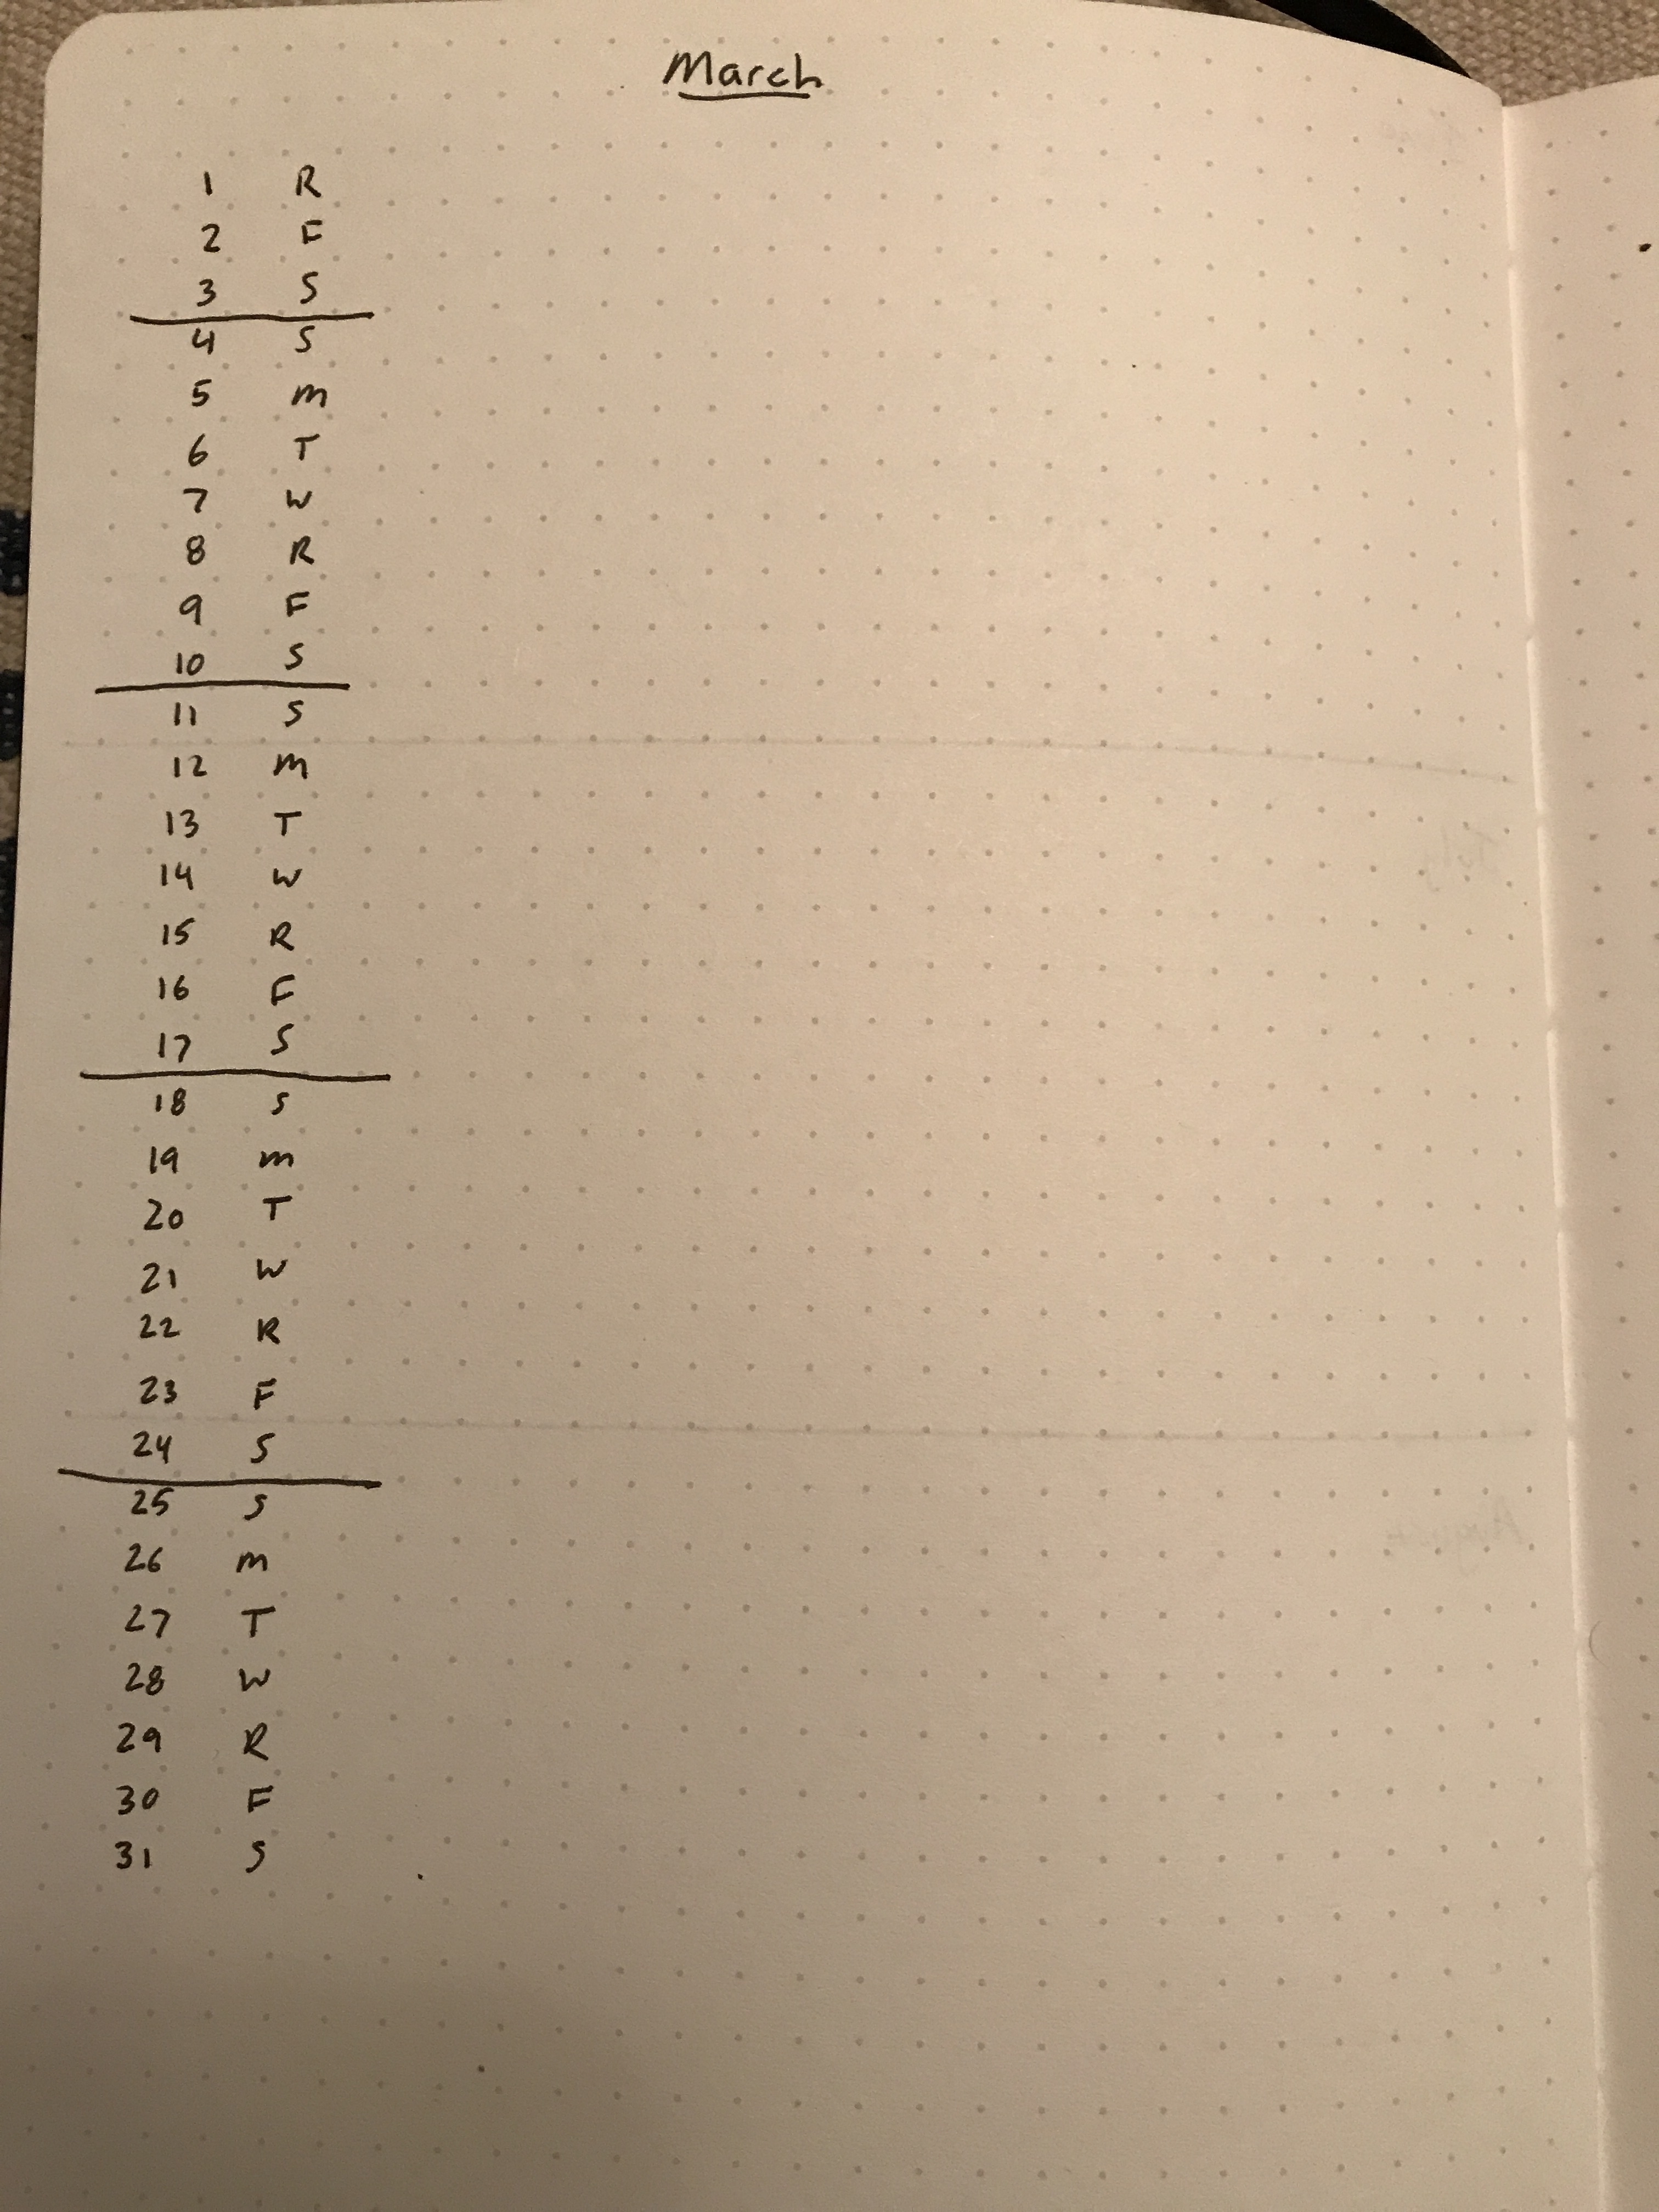 March
1 R
2 F
3 S
4 S
5 M
6 T
7 W
8 R
9 F
10 S
11 S
12 M
13 T
14 W
15 R
16 F
17 S
18 S
19 M
20 T
21 W
22 R
23 F
24 S
25 S
26 M
27 T
28 W
29 R
30 F
31 S
July
August